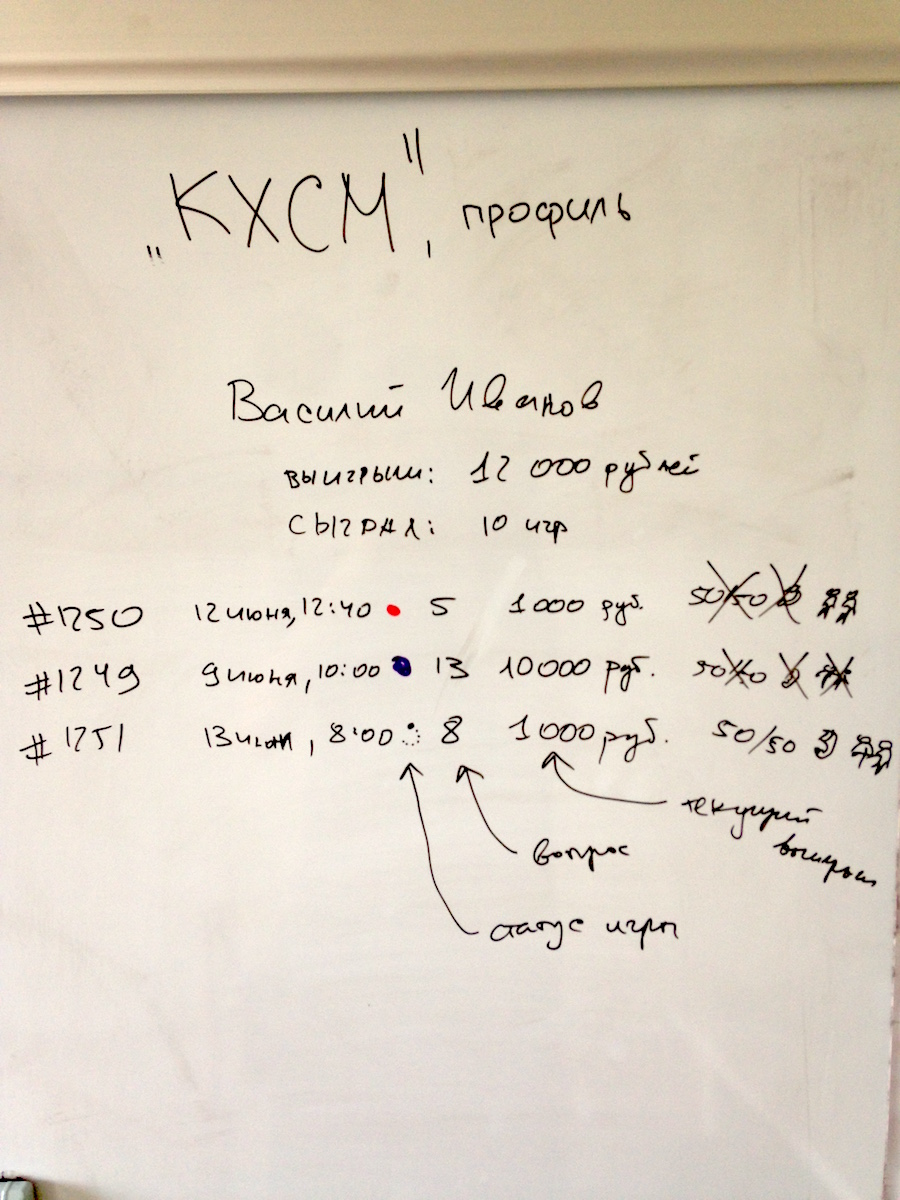 „КХСМ", профиль
Василий Иванов
выигрыш: 12 000 рублей
сыграл: 10 игр
#1250 12 июня, 12:40 5 1000 руб. 50/50
#1249 9 июня, 10:00 13 10000 руб. 50/50
#1251 13 июня, 8:00 8 1000 руб. 50/50
текущий
выигрыш
вопрос
статус игры